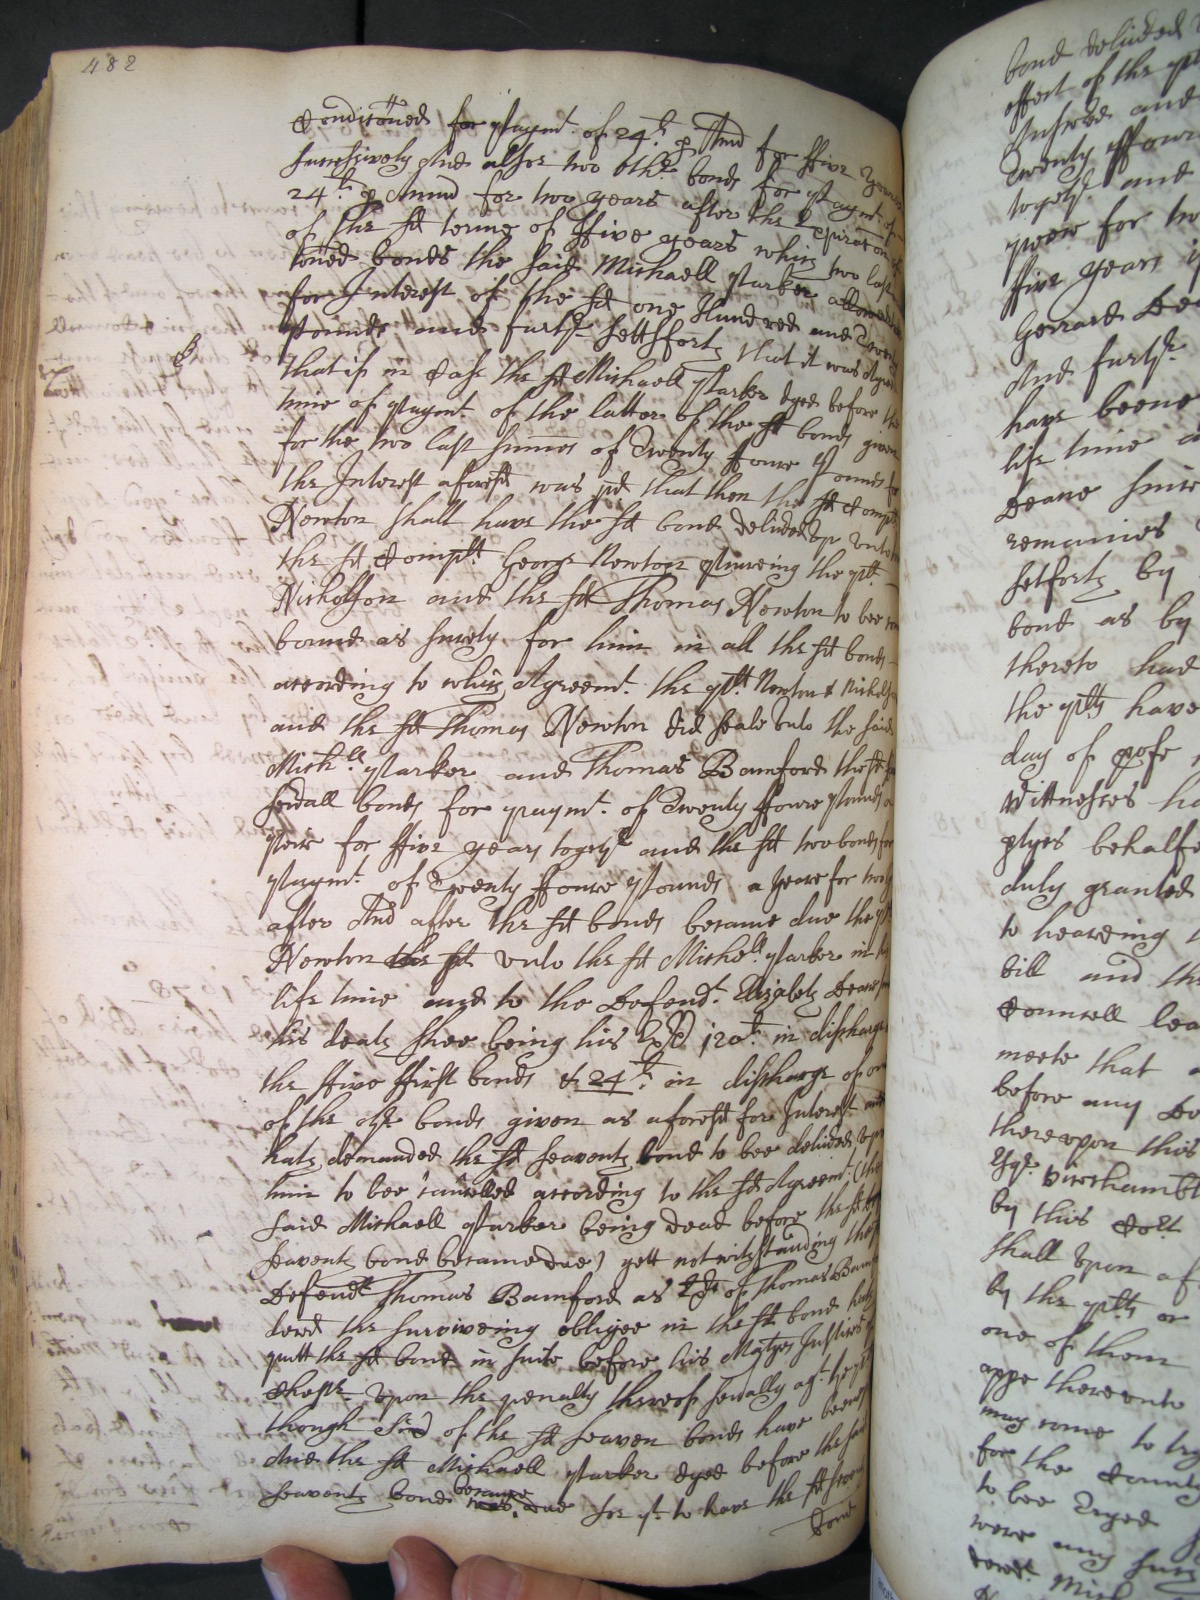 482
Conditioned for paymt. of 24li. p Annu for ffive years
successively And alsoe two other bonds for paymt. of
24li. p Annu for two years after the Expiration
of the sd terme of ffive years which two last
coned bonds the said Michaell Parker
for Interest of the sd one Hundred and Twenty
pounds and furthr. settsforth that it was Agreed
that if in Case the sd Michaell Parker dyed before the
time of paymt. of the latter of the sd bonds given
for the two last summes of Twenty ffoure Pounds for
the Interest aforesd was pd that then the sd Complt
Newton shall have the sd bond delivered up unto
the sd Complt. George Newton procureing the plt.
Nicholson and the sd Thomas Newton to bee
bound as surety for him in all the sd bonds
according to which Agreemt. the plts Newton & Nicholson
and the sd Thomas Newton did seale unto the said
Michll Parker and Thomas Bamford the sd
severall bonds for paymt. of Twenty ffoure Pounds a
yeare for ffive years togethr and the sd two bonds for
paymt. of Twenty ffoure Pounds a yeare for two
after And after the sd bonds became due the plt
Newton pd unto the sd Michell Parker in his
life time and to the Defendt. Elizabeth Deane
his death Shee being his Exx 120li. in discharge
the ffive ffirst bonds & 24li. in discharge of one
of the othr bonds given as aforesd for Interest and
hath demanded the sd seaventh bond to bee delivered up
him to bee cancelled according to the sd Agreemt. (the
said Michaell Parker being dead before the sd
seaventh bond became due) yett notwithstanding the
Defendt Thomas Bamford as Exr of Thomas Bam
ford the surviveing obligee in the sd bond hath
putt the sd bond in suite before his Matyes Justices
Chestr upon the penalty thereof severally agt. the plts
though Six of the sd seaven bonds have been
And the sd Michaell Parker dyed before the said
seaventh bond became due Soe yt. to have the sd
bond
bond delivered
effect of the
Answered and
Twenty ffoure
togethr and
yeare for two
ffive years
Gerrard De
And furthr.
have beene
life time
Deane since
remaines
setforth by
bond as by
thereto had
the plts have
day of
Wittnesses
ptyes behalfe
duly granted
to heareing
bill and the
Councell
meete that
before any De
thereupon this
Esqr.
by this Cort
shall upon
by the plts or
one of them
appe thereunto
may come to try
for the County
to bee Tryed
were any such
Mich